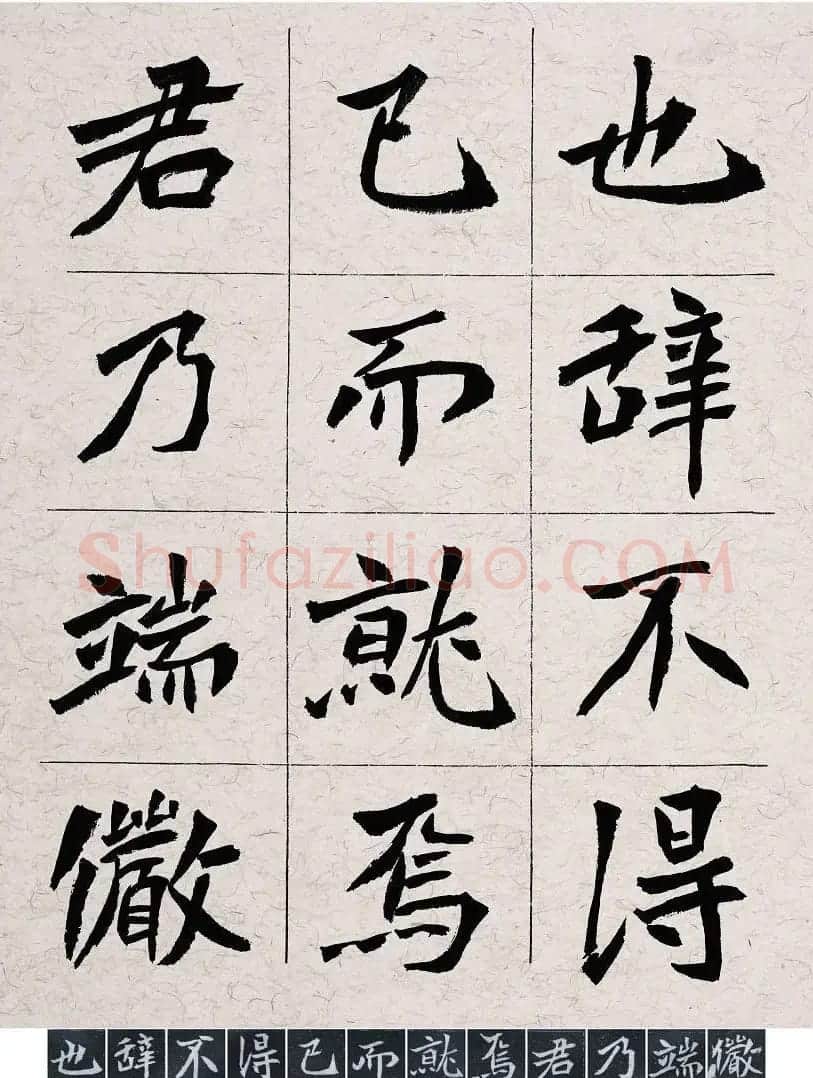 也辞不得
已而就焉
君乃端儼
Shufaziliao.COM
也辞不得已而就焉君乃端儼